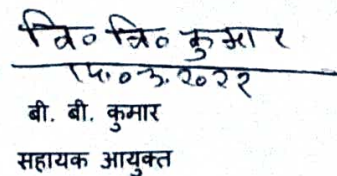 बि० बि० कुमार
१५.०३.२०२२
बी. बी. कुमार
सहायक आयुक्त